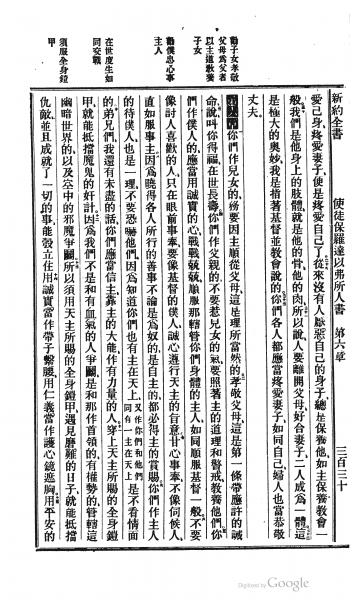 新約全書 使徒保羅達以弗所人書 第六章 三百三十
愛己身疼愛妻子便是疼愛自己了從來沒有人厭惡自己的身子總是保養他如主保養教會一
般我們是他身上的肢體就是他的骨他的肉所以人要離開父母好合妻子二人成爲一體這
是極大的奧妙我是指著基督並教會說的你們各人都應當疼愛妻子如同自己婦人也當恭敬
丈夫
你們作兒女的須要因主順從父母這是理所當然的孝敬父母這是第一條帶應許的誡
命說叫你得福在世長壽你們作父親的不要惹兒女的氣要照著主的道理和警戒教養他們你
們作僕人的應當用誠實的心戰戰兢兢順服那轄管你們身體的主人如同順服基督一般不要
像討人喜歡的人只在眼前事奉要像基督的僕人誠心遵行天主的旨意甘心事奉不像伺候人
直如服事主因爲曉得各人所行的善事不論是爲奴的是自主的都必得主的賞賜你們作主人
的待僕人也是一理不要恐嚇他們因爲知道你們也有主在天上又作你們和他們同有一主在天上是不看情面
的弟兄們我還有未盡的話你們應當信主靠主的大能作有力量的人穿上天主所賜的全身鎧
甲就能抵擋魔鬼的奸計因爲我們不是和有血氣的人爭鬭是和那作首領的有權勢的管轄這
幽暗世界的以及空中的邪魔爭鬭所以須用天主所賜的全身鎧甲遇見磨難的日子就能抵擋
仇敵並且成就了一切的事能彀立住用誠實當作帶子繫腰用仁義當作護心鏡遮胸用平安的
勸子女孝敬
父母爲父者
以主道教養
子女
勸僕忠心事
主人
在世度生如
同交戰
須服全身鎧
甲
Digitized by Google